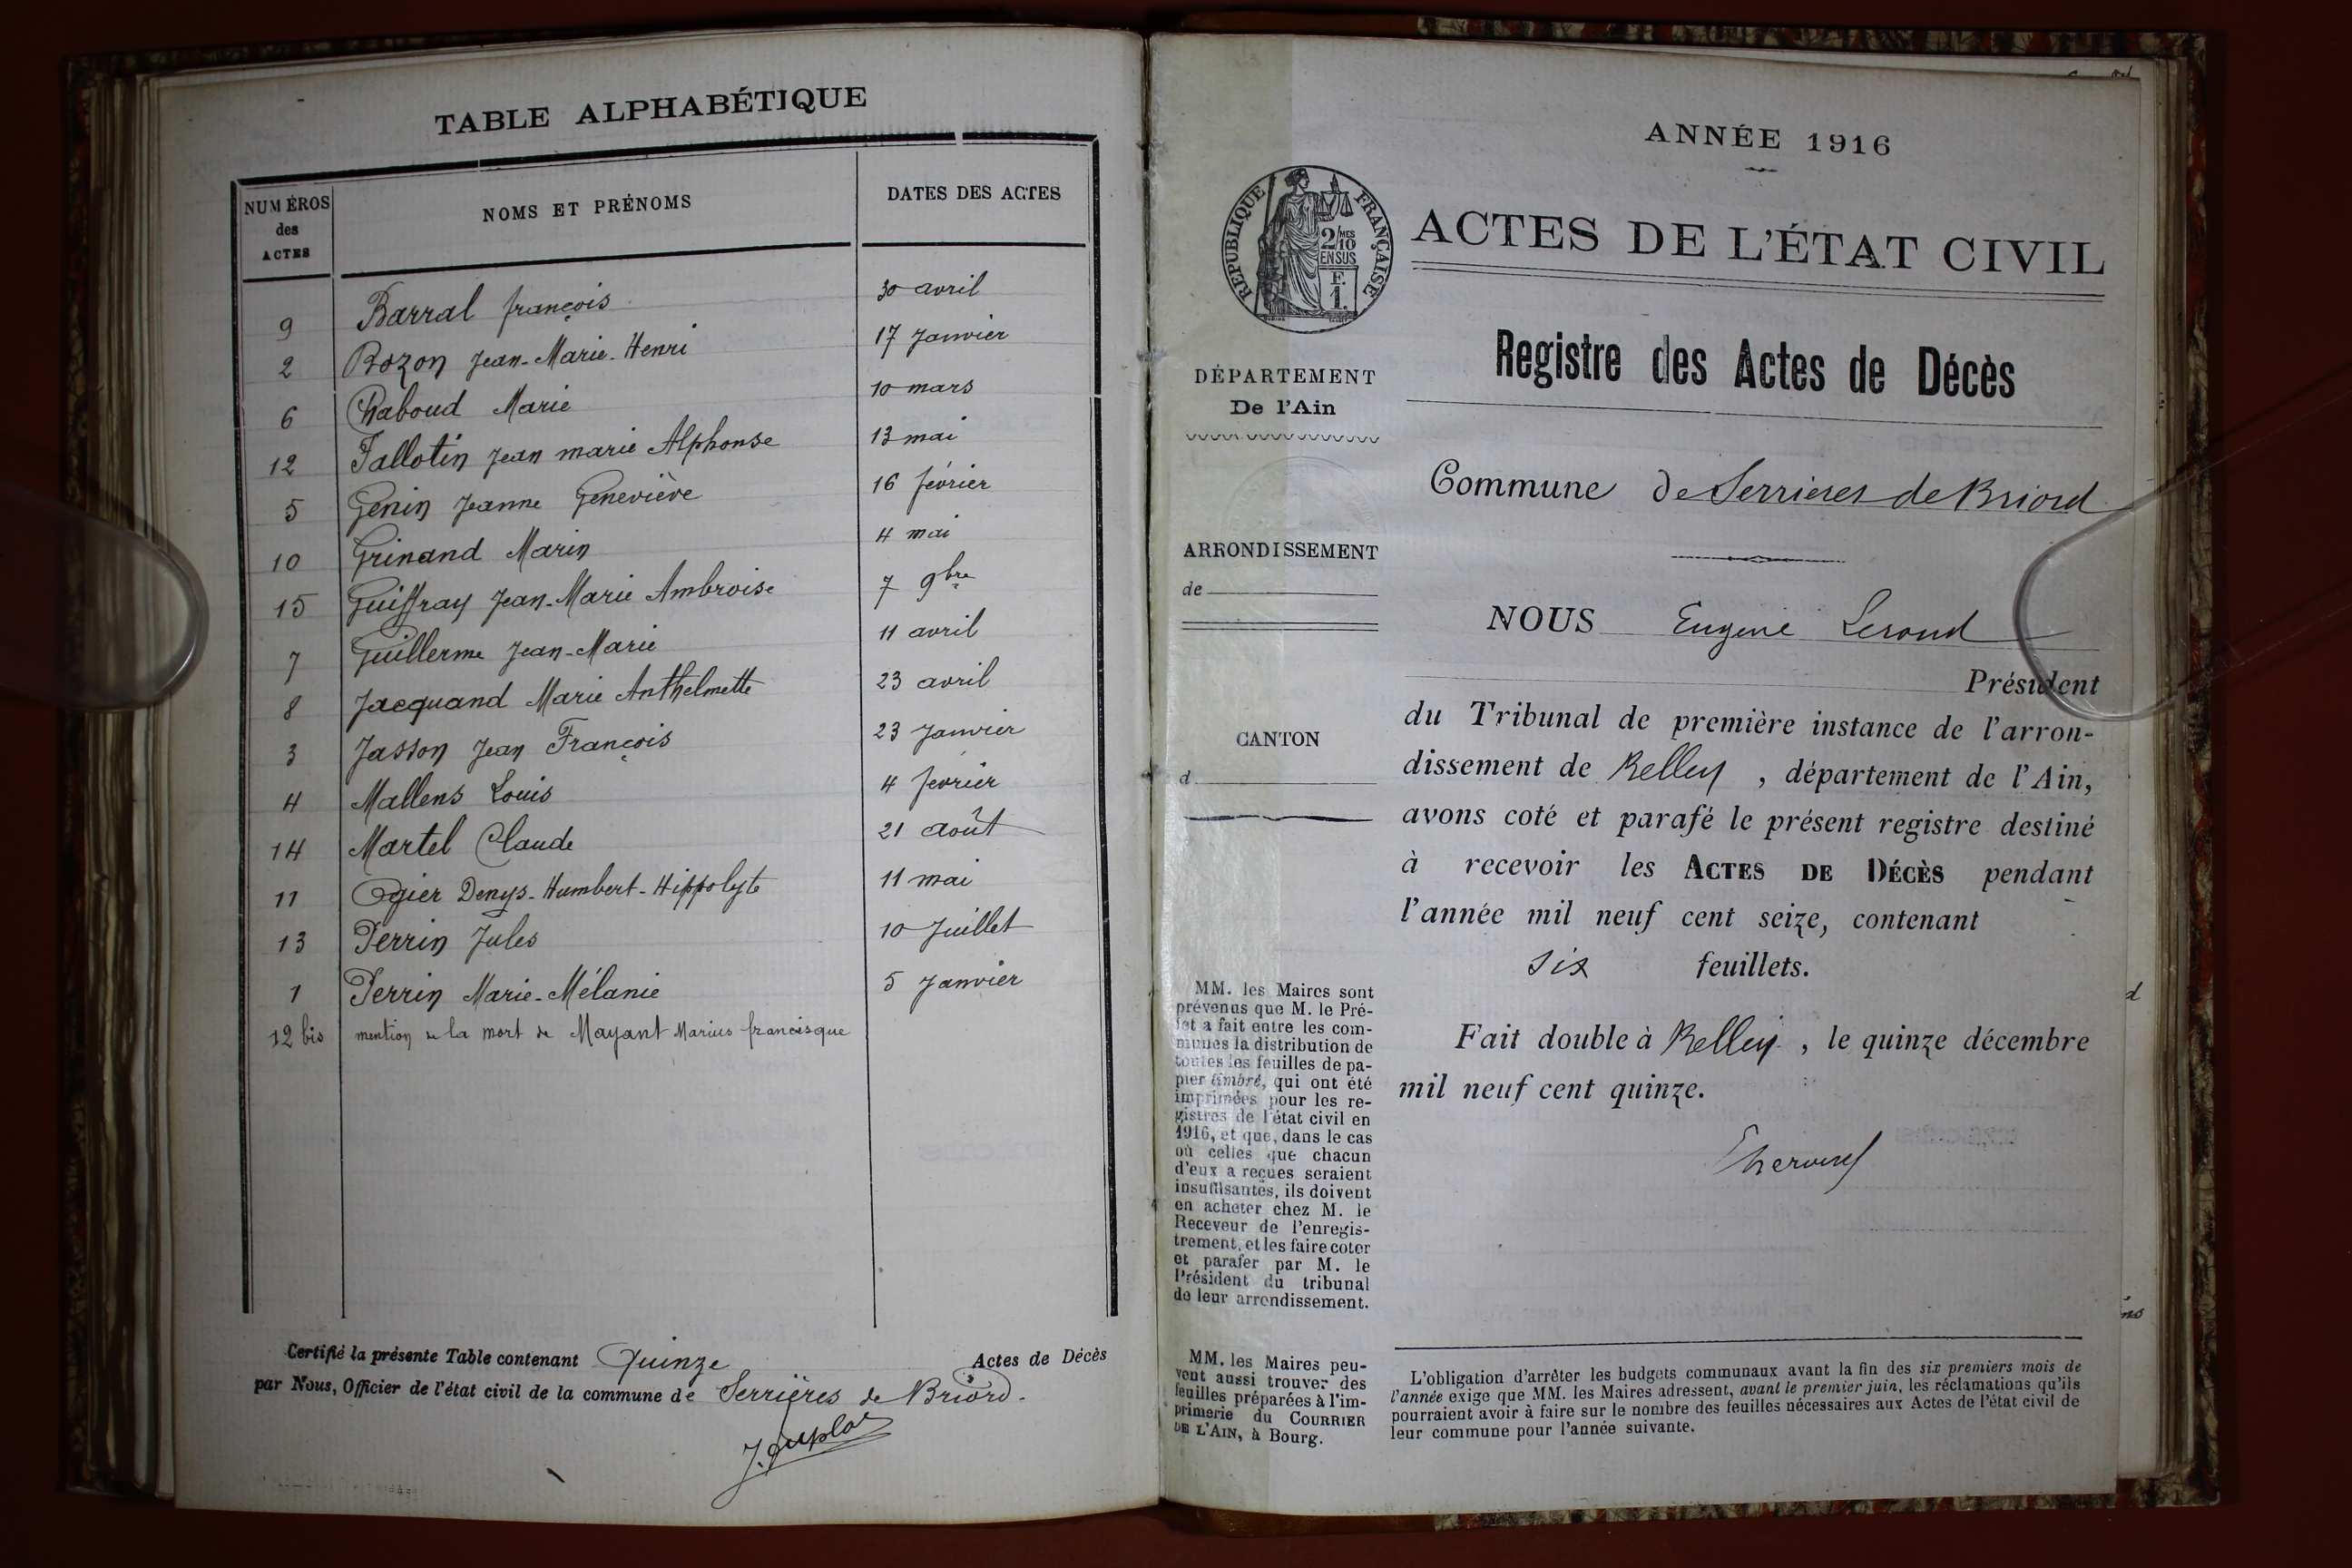 TABLE ALPHABÉTIQUE
NUMÉROS
des
ACTES
NOMS ET PRÉNOMS
DATES DES ACTES
9 Barral françois 30 avril
2 Bozon Jean-Marie-Henri 17 Janvier
6 Chaboud Marie 10 mars
12 Fallotin Jean marie Alphonse 13 mai
5 Genin Jeanne Geneviève 16 février
10 Grinand Marin 4 mai
15 Guiffray Jean-Marie Ambroise 7 9bre
7 Guillerme Jean-Marie 11 avril
8 Jacquand Marie Anthelmette 23 avril
3 Jasson Jean François 23 Janvier
4 Mallens Louis 4 fevrier
14 Martel Claude 21 août
11 Ogier Denys-Humbert-Hippolyte 11 mai
13 Perrin Jules 10 Juillet
1 Perrin Marie-Mélanie 5 Janvier
12 bis mention de la mort de Mayant Marius francisque
Certifié la présente Table contenant Quinze Actes de Décès
par Nous, Officier de l'état civil de la commune de Serrières de Briord.
ANNÉE 1916
RÉPUBLIQUE FRANÇAISE
2/MES
10
EN SUS
F.
1.
ACTES DE L'ÉTAT CIVIL
Registre des Actes de Décès
DÉPARTEMENT
De l'Ain
Commune de Serrieres de Briord
ARRONDISSEMENT
de
CANTON
d
NOUS Eugene
Président
du Tribunal de première instance de l'arron-
dissement de Belley, département de l'Ain,
avons coté et parafé le présent registre destiné
à recevoir les ACTES DE DÉCÈS pendant
l'année mil neuf cent seize, contenant
six feuillets.
Fait double à Belley, le quinze décembre
mil neuf cent quinze.
MM. les Maires sont
prévenus que M. le Pré-
fet a fait entre les com-
munes la distribution de
toutes les feuilles de pa-
pier timbré, qui ont été
imprimées pour les re-
gistres de l'état civil en
1916, et que, dans le cas
où celles que chacun
d'eux a reçues seraient
insuffisantes, ils doivent
en acheter chez M. le
Receveur de l'enregis-
trement, et les faire coter
et parafer par M. le
Président du tribunal
de leur arrondissement.
MM. les Maires peu-
vent aussi trouver des
feuilles préparées à l'im-
primerie du COURRIER
DE L'AIN, à Bourg.
L'obligation d'arrêter les budgets communaux avant la fin des six premiers mois de
l'année exige que MM. les Maires adressent, avant le premier juin, les réclamations qu'ils
pourraient avoir à faire sur le nombre des feuilles nécessaires aux Actes de l'état civil de
leur commune pour l'année suivante.